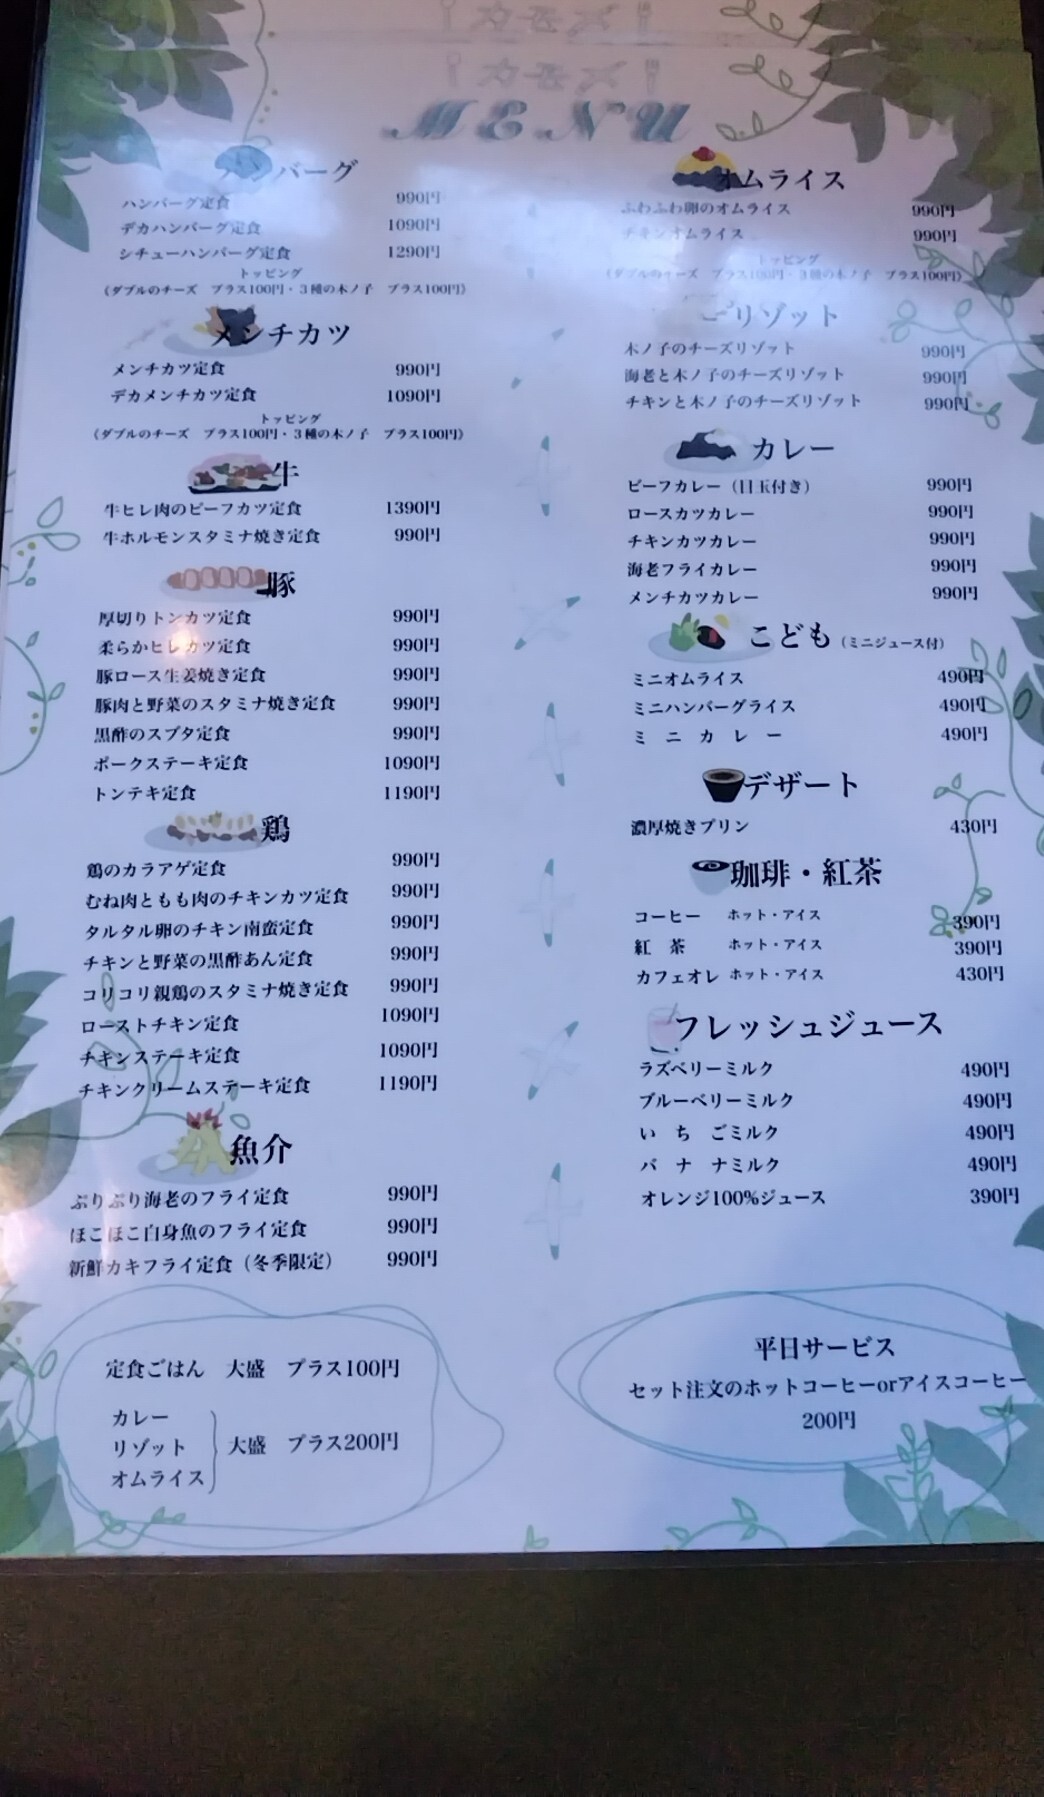 カモメ
カモメ
MENU
ハンバーグ
ハンバーグ定食 990円
デカハンバーグ定食 1090円
シチューハンバーグ定食 1290円
トッピング
(ダブルのチーズ プラス100円・3種の木ノ子 プラス100円)
メンチカツ
メンチカツ定食 990円
デカメンチカツ定食 1090円
トッピング
(ダブルのチーズ プラス100円・3種の木ノ子 プラス100円)
牛
牛ヒレ肉のビーフカツ定食 1390円
牛ホルモンスタミナ焼き定食 990円
豚
厚切りトンカツ定食 990円
柔らかヒレカツ定食 990円
豚ロース生姜焼き定食 990円
豚肉と野菜のスタミナ焼き定食 990円
黒酢のスブタ定食 990円
ポークステーキ定食 1090円
トンテキ定食 1190円
鶏
鶏のカラアゲ定食 990円
むね肉ともも肉のチキンカツ定食 990円
タルタル卵のチキン南蛮定食 990円
チキンと野菜の黒酢あん定食 990円
コリコリ親鶏のスタミナ焼き定食 990円
ローストチキン定食 1090円
チキンステーキ定食 1090円
チキンクリームステーキ定食 1190円
魚介
ぷりぷり海老のフライ定食 990円
ほこほこ白身魚のフライ定食 990円
新鮮カキフライ定食（冬季限定） 990円
定食ごはん 大盛 プラス100円
カレー
リゾット 大盛 プラス200円
オムライス
オムライス
ふわふわ卵のオムライス 990円
チキンオムライス 990円
トッピング
(ダブルのチーズ プラス100円・3種の木ノ子 プラス100円)
リゾット
木ノ子のチーズリゾット 990円
海老と木ノ子のチーズリゾット 990円
チキンと木ノ子のチーズリゾット 990円
カレー
ビーフカレー（目玉付き） 990円
ロースカツカレー 990円
チキンカツカレー 990円
海老フライカレー 990円
メンチカツカレー 990円
こども（ミニジュース付）
ミニオムライス 490円
ミニハンバーグライス 490円
ミニカレー 490円
デザート
濃厚焼きプリン 430円
珈琲・紅茶
コーヒー ホット・アイス 390円
紅茶 ホット・アイス 390円
カフェオレ ホット・アイス 430円
フレッシュジュース
ラズベリーミルク 490円
ブルーベリーミルク 490円
いちごミルク 490円
バナナミルク 490円
オレンジ100%ジュース 390円
平日サービス
セット注文のホットコーヒーorアイスコーヒー
200円